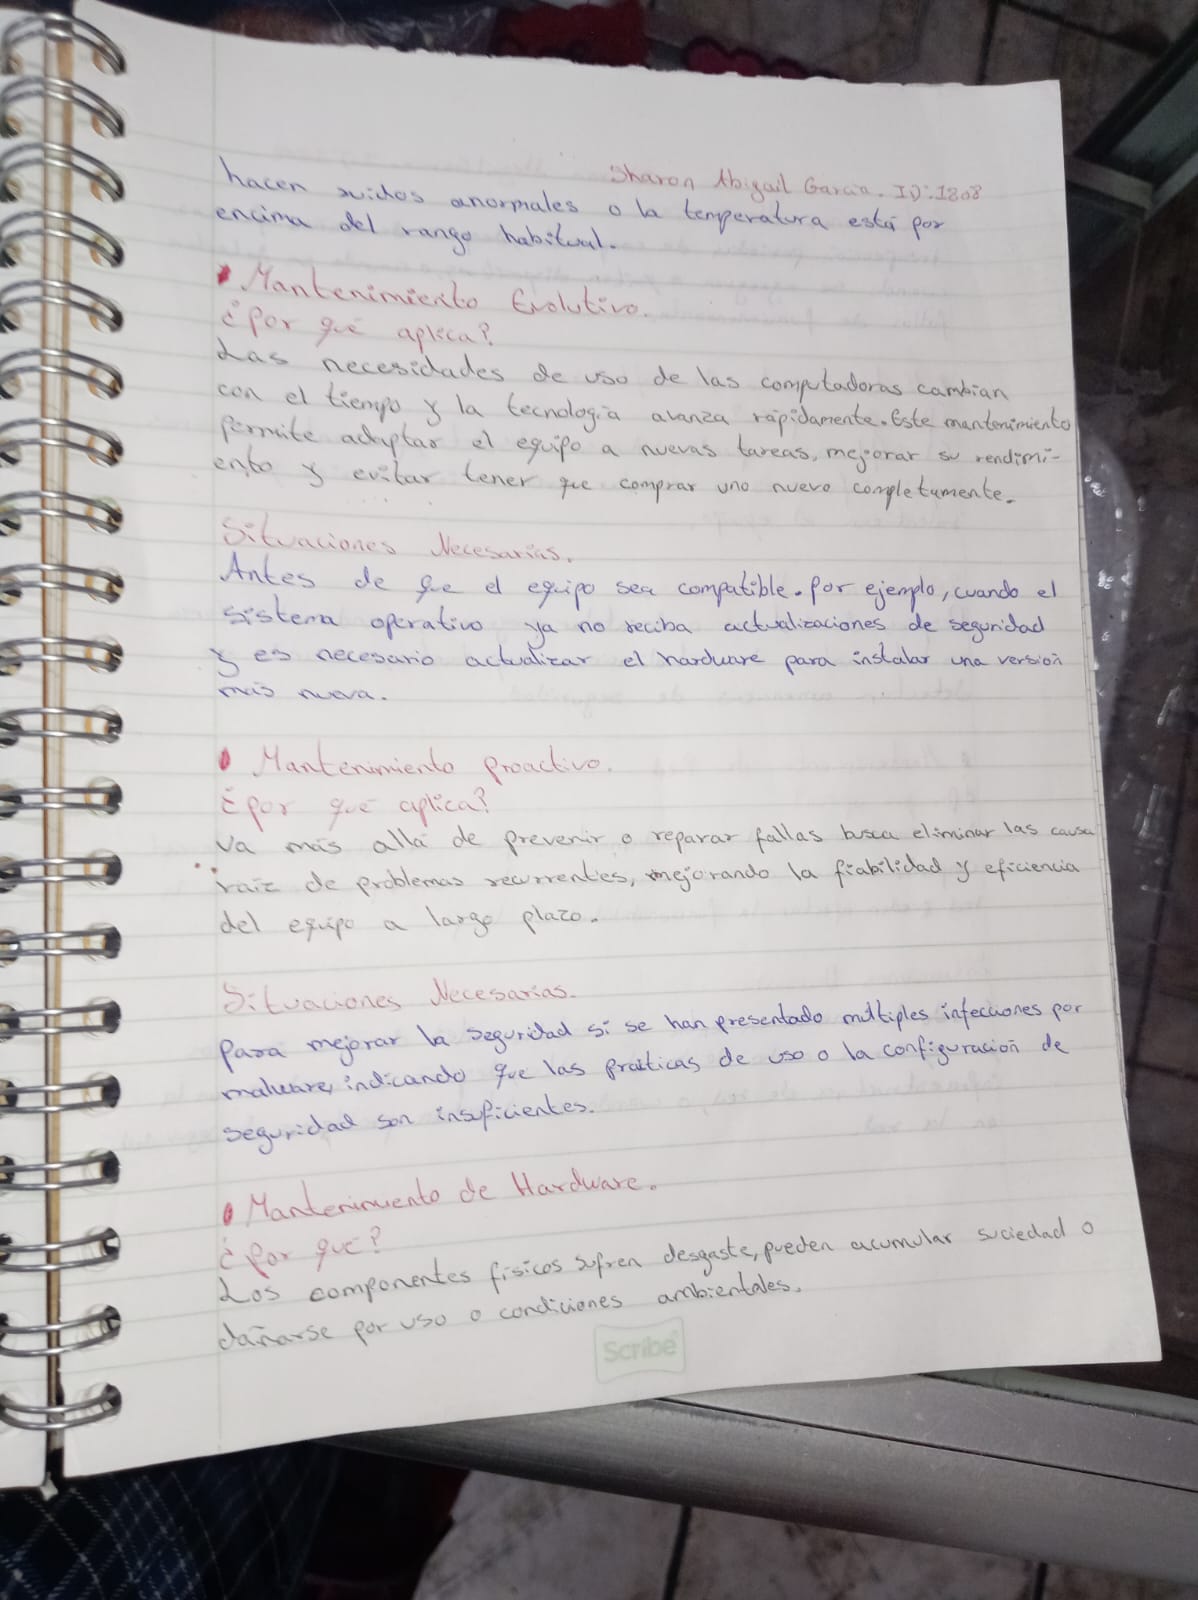 Sharon Abigail Garcia. ID:1808
hacen ruidos anormales o la temperatura está por
encima del rango habitual.
• Mantenimiento Evolutivo.
¿Por qué aplica?
Las necesidades de uso de las computadoras cambian
con el tiempo y la tecnología avanza rápidamente. Este mantenimiento
permite adaptar el equipo a nuevas tareas, mejorar su rendimi-
ento y evitar tener que comprar uno nuevo completamente.
Situaciones Necesarias.
Antes de que el equipo sea compatible. Por ejemplo, cuando el
sistema operativo ya no reciba actualizaciones de seguridad
y es necesario actualizar el hardware para instalar una versión
más nueva.
• Mantenimiento Proactivo.
¿Por qué aplica?
Va más allá de prevenir o reparar fallas busca eliminar las causa
raíz de problemas recurrentes, mejorando la fiabilidad y eficiencia
del equipo a largo plazo.
Situaciones Necesarias.
Para mejorar la seguridad si se han presentado múltiples infecciones por
malware, indicando que las prácticas de uso o la configuración de
seguridad son insuficientes.
• Mantenimiento de Hardware.
¿Por qué?
Los componentes físicos sufren desgaste, pueden acumular suciedad o
dañarse por uso o condiciones ambientales.
Scribe